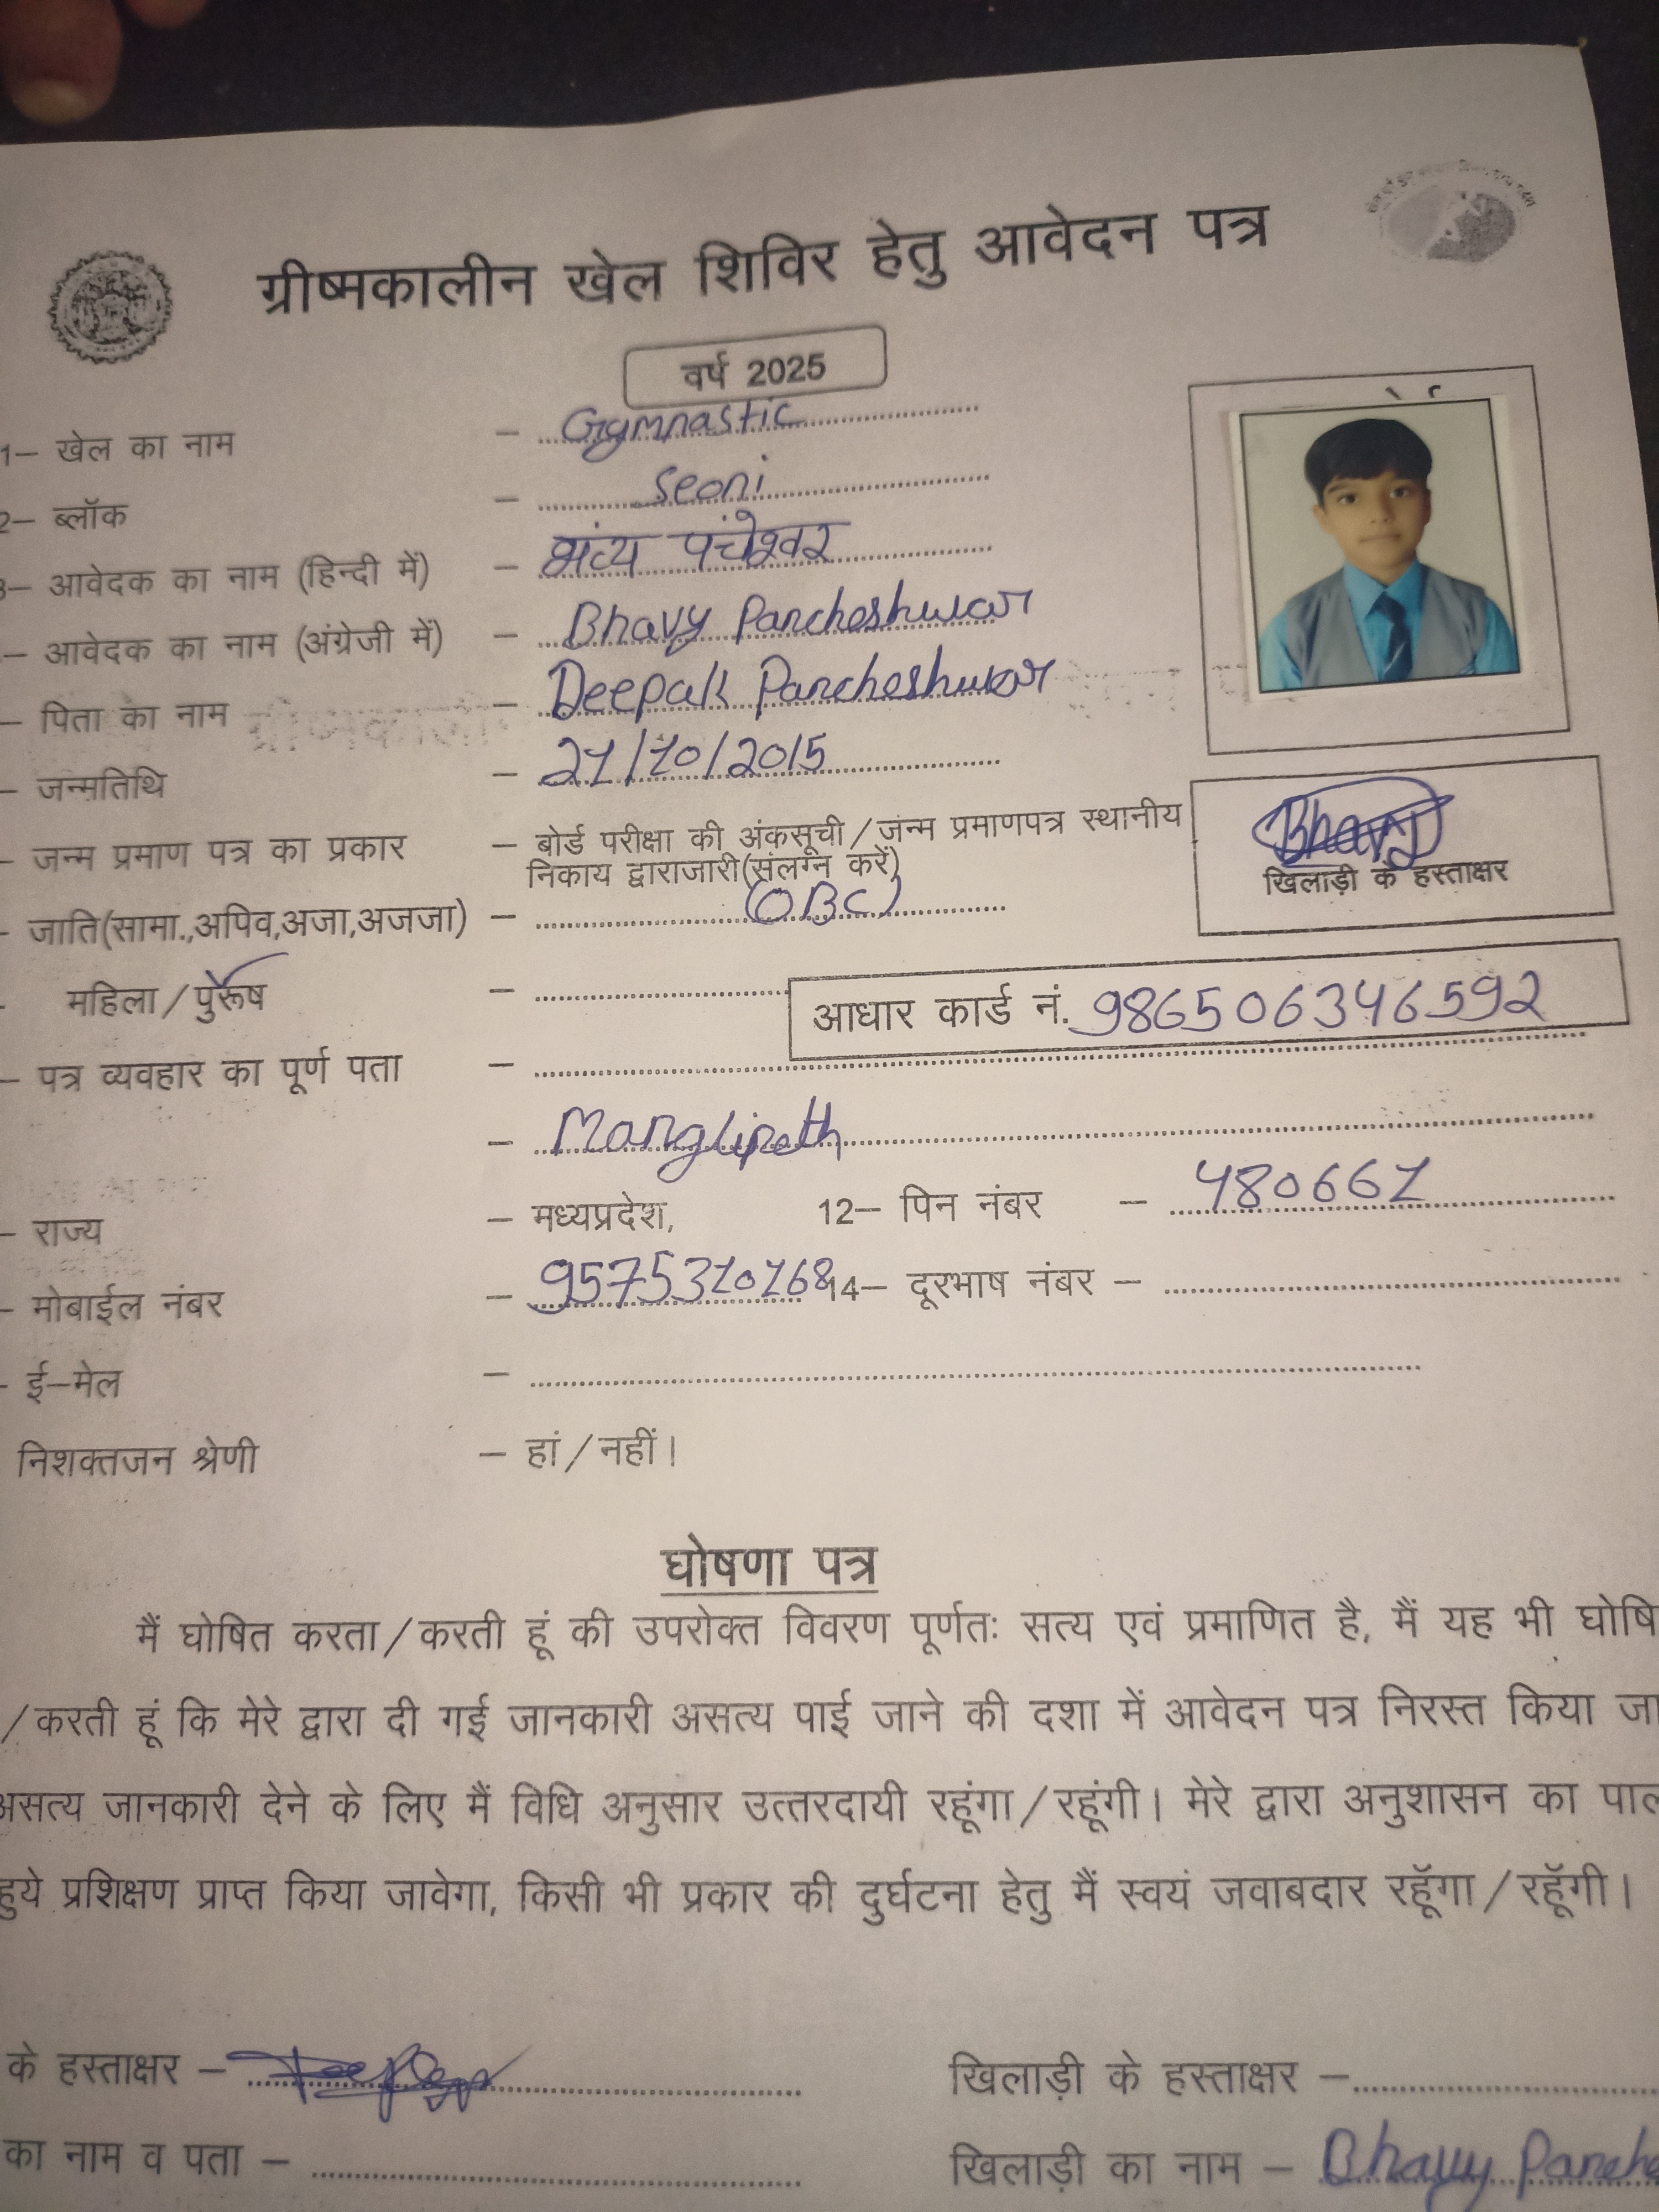 ग्रीष्मकालीन खेल शिविर हेतु आवेदन पत्र
वर्ष 2025
1– खेल का नाम – Gymnastic
2– ब्लॉक – Seoni
3– आवेदक का नाम (हिन्दी में) – भव्य पंचेश्वर
– आवेदक का नाम (अंग्रेजी में) – Bhavy Pancheshwar
– पिता का नाम – Deepak Pancheshwar
– जन्मतिथि – 21/10/2015
– जन्म प्रमाण पत्र का प्रकार – बोर्ड परीक्षा की अंकसूची/जन्म प्रमाणपत्र स्थानीय
निकाय द्वाराजारी(संलग्न करें)
Bhavy
खिलाड़ी के हस्ताक्षर
– जाति(सामा.,अपिव,अजा,अजजा) – (OBC)
महिला/पुरूष –
आधार कार्ड नं. 986506346592
– पत्र व्यवहार का पूर्ण पता –
– Manglipeth
– राज्य – मध्यप्रदेश, 12– पिन नंबर – 480661
– मोबाईल नंबर – 9575310168 14– दूरभाष नंबर –
– ई–मेल –
निशक्तजन श्रेणी – हां/नहीं।
घोषणा पत्र
मैं घोषित करता/करती हूं की उपरोक्त विवरण पूर्णतः सत्य एवं प्रमाणित है, मैं यह भी घोषि
/करती हूं कि मेरे द्वारा दी गई जानकारी असत्य पाई जाने की दशा में आवेदन पत्र निरस्त किया जा
असत्य जानकारी देने के लिए मैं विधि अनुसार उत्तरदायी रहूंगा/रहूंगी। मेरे द्वारा अनुशासन का पाल
हुये प्रशिक्षण प्राप्त किया जावेगा, किसी भी प्रकार की दुर्घटना हेतु मैं स्वयं जवाबदार रहूॅगा/रहूॅगी।
के हस्ताक्षर – खिलाड़ी के हस्ताक्षर –
का नाम व पता – खिलाड़ी का नाम – Bhavy Panche